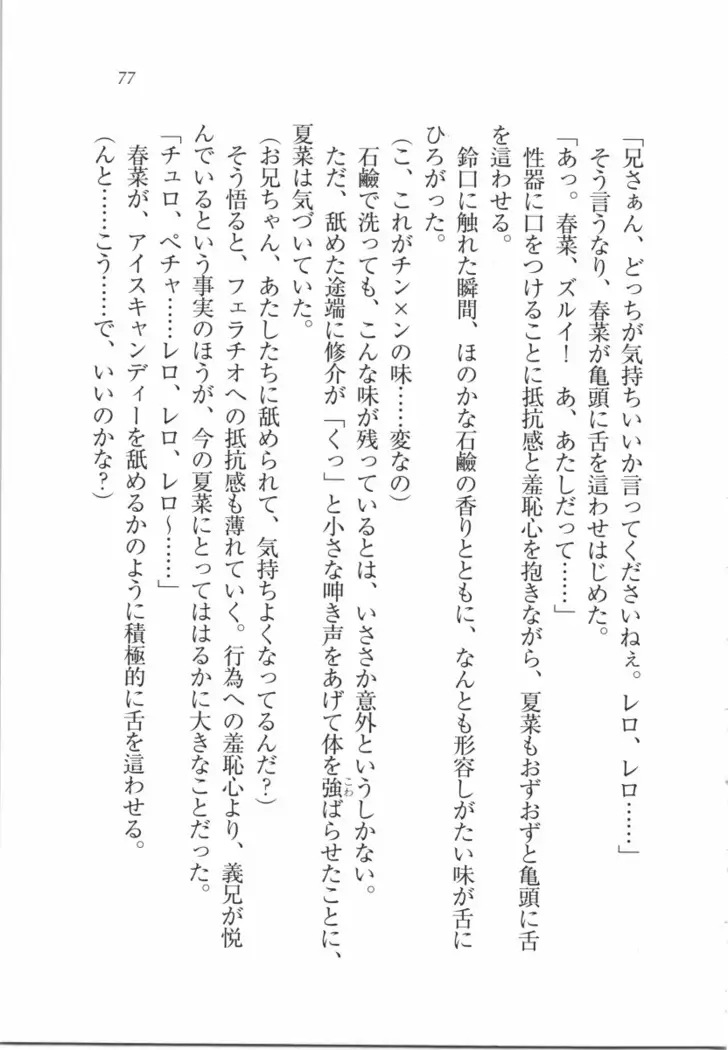 77
「兄さぁん、どっちが気持ちいいか言ってくださいねぇ。レロ、レロ……」
そう言うなり、春菜が亀頭に舌を這わせはじめた。
「あっ。春菜、ズルイ！　あ、あたしだって……」
性器に口をつけることに抵抗感と羞恥心を抱きながら、夏菜もおずおずと亀頭に舌
を這わせる。
鈴口に触れた瞬間、ほのかな石鹼の香りとともに、なんとも形容しがたい味が舌に
ひろがった。
（こ、これがチン×ンの味……変なの）
石鹼で洗っても、こんな味が残っているとは、いささか意外というしかない。
ただ、舐めた途端に修介が「くっ」と小さな呻き声をあげて体を強こわばらせたことに、
夏菜は気づいていた。
（お兄ちゃん、あたしたちに舐められて、気持ちよくなってるんだ？）
そう悟ると、フェラチオへの抵抗感も薄れていく。行為への羞恥心より、義兄が悦
んでいるという事実のほうが、今の夏菜にとってははるかに大きなことだった。
「チュロ、ペチャ……レロ、レロ、レロ〜……」
春菜が、アイスキャンディーを舐めるかのように積極的に舌を這わせる。
（んと……こう……で、いいのかな？）